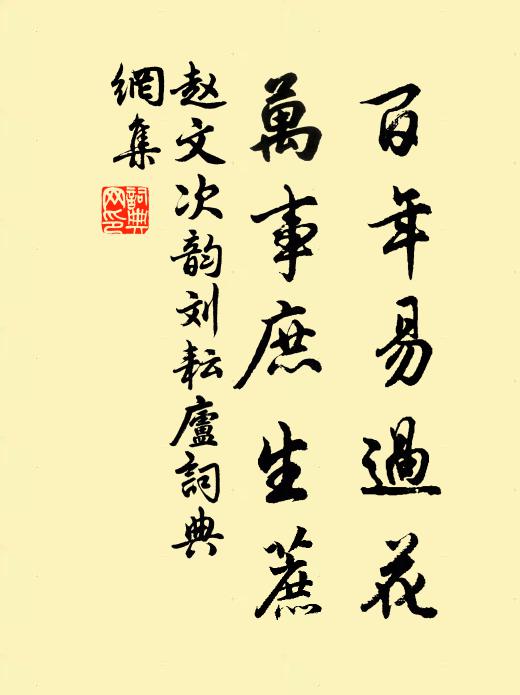 百年易過花
萬事庶生蔗
赵文次韵刘耘廬詞典
網集
詞典
网印